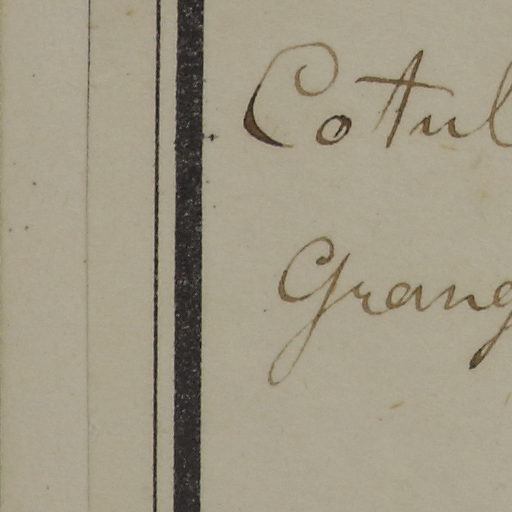 Cotul
Grang